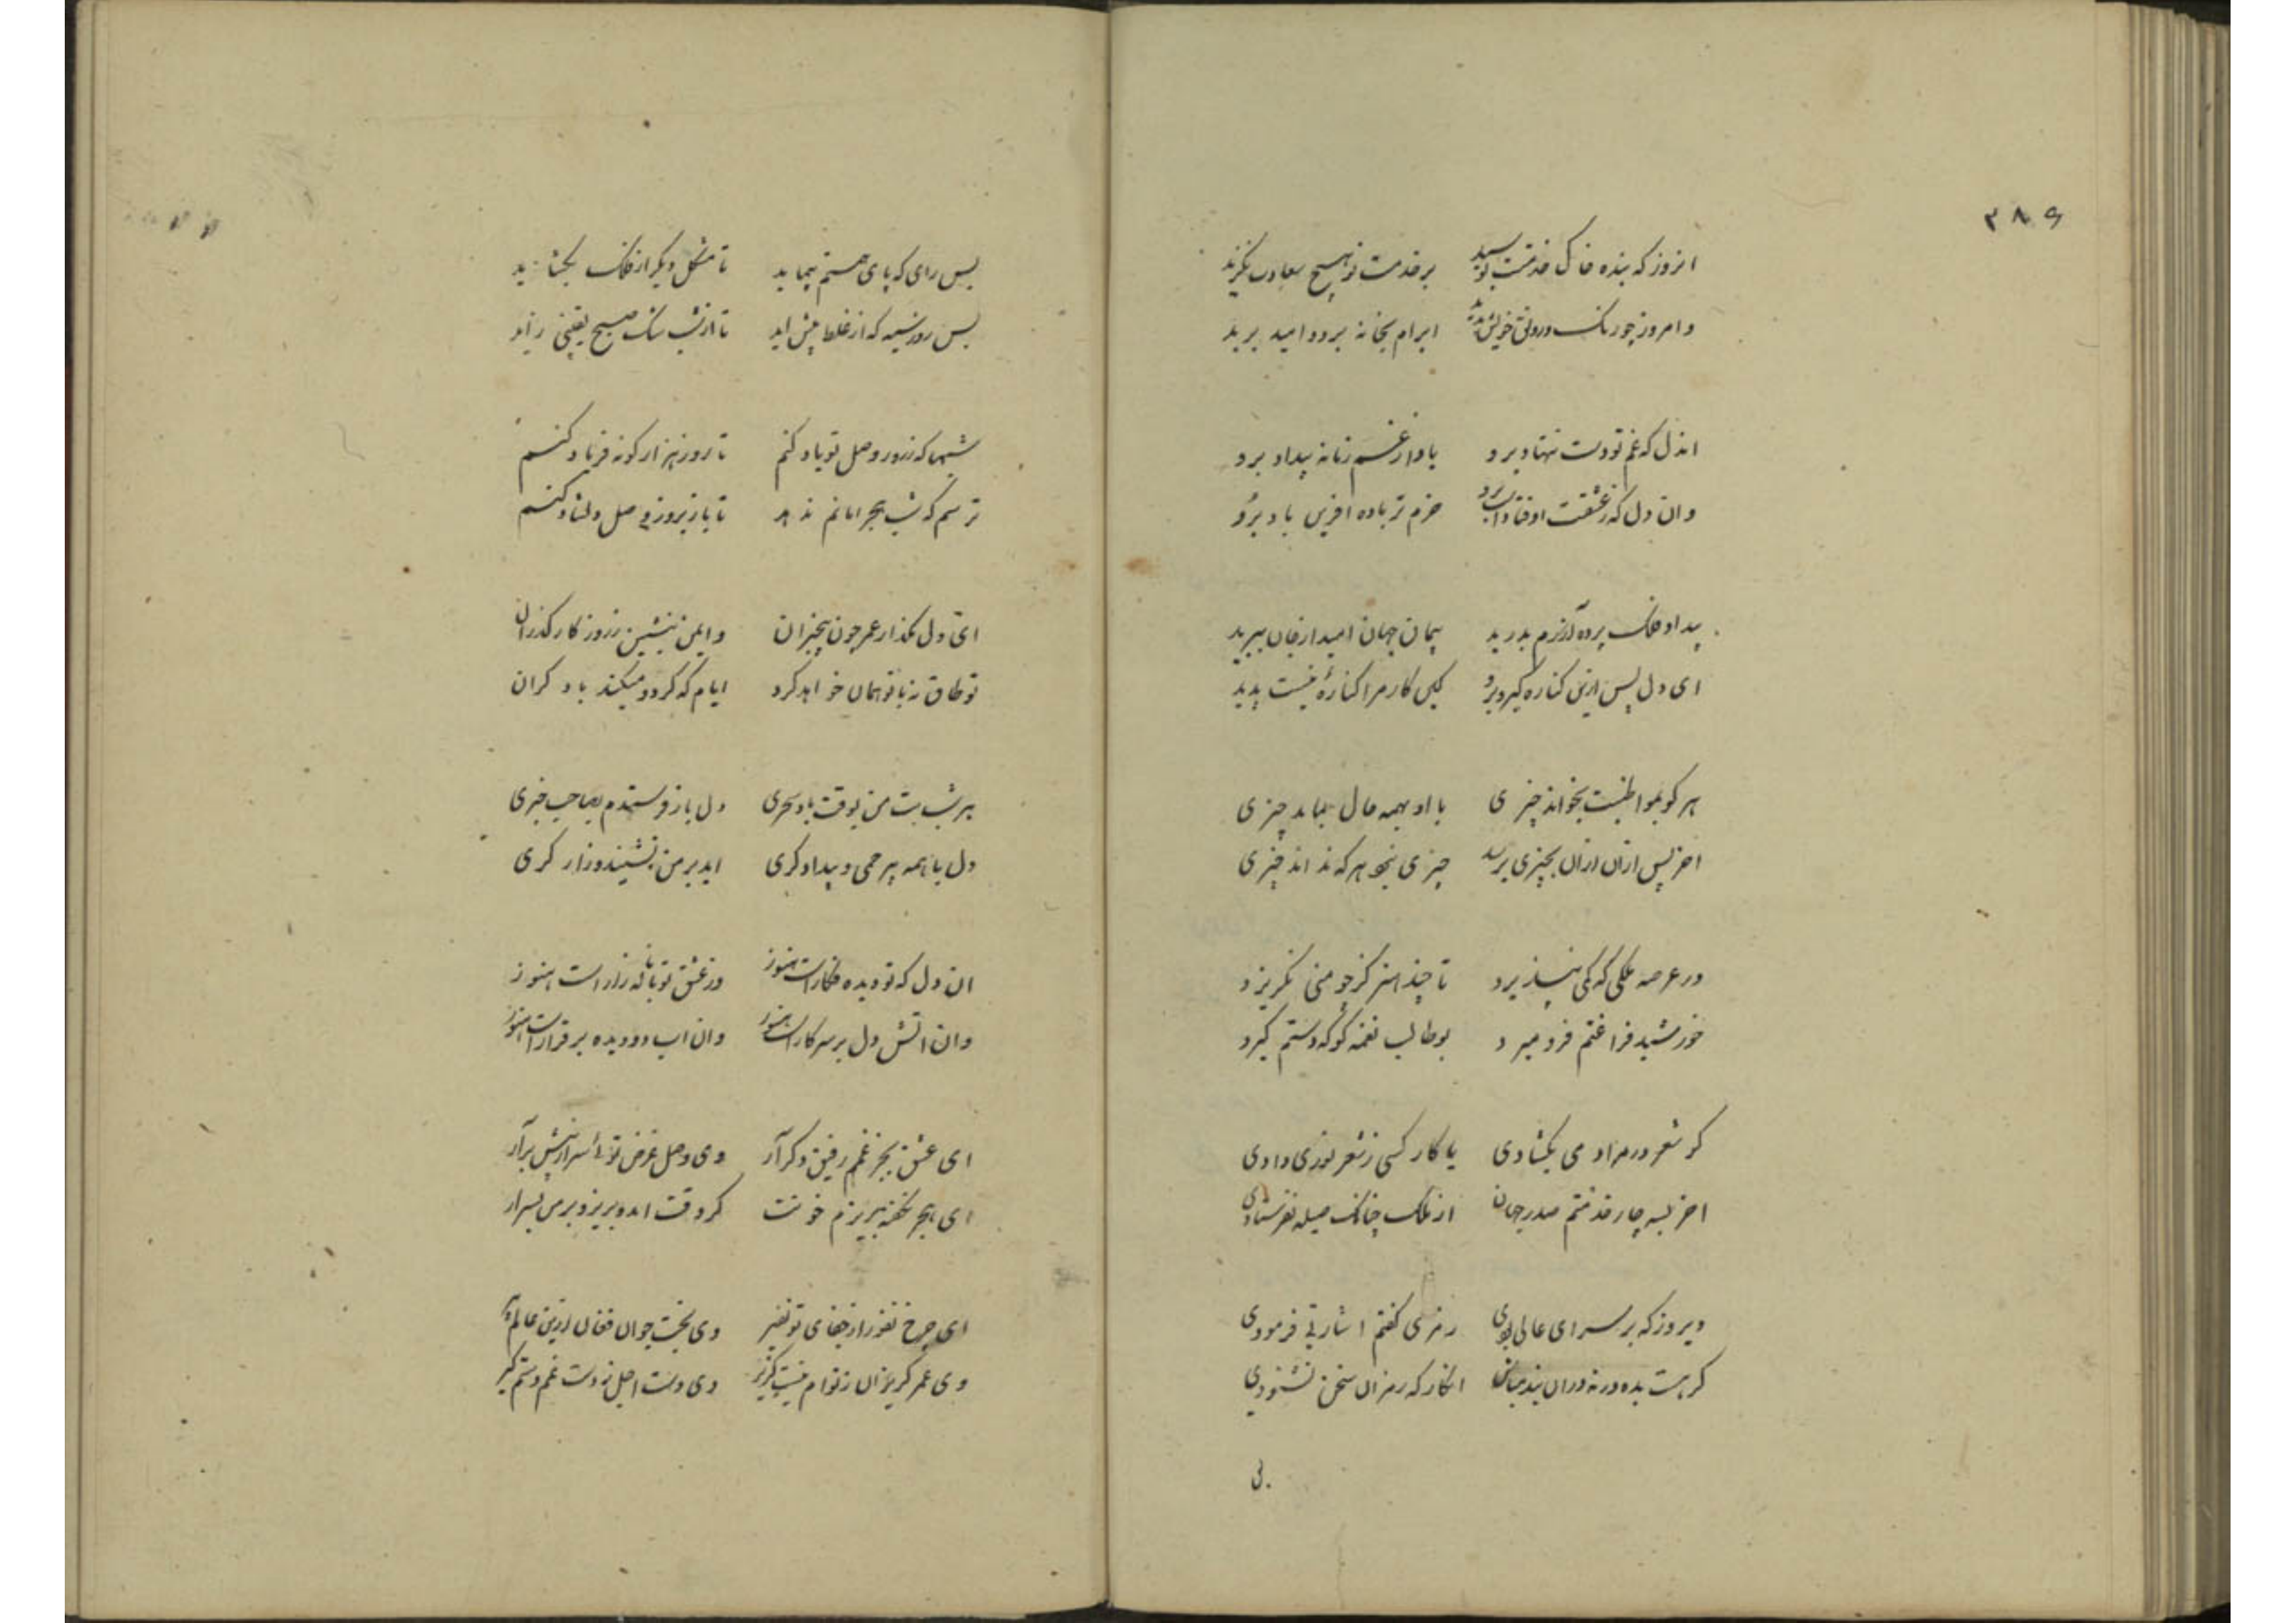 ۳۸۶
انروز که بنده خاک خدمت بوسید بر خدمت تو هیچ سعادت نگزید
و امروز چو رنگ و رونق خویش ندید ابرام بخانه برد و امید برید
اندل که غم تو دست تنها ببرد یاد از غم زمانه بیداد برد
وان دل که ز عشقت اوفتاد خرم تر باده افرین باد برو
بیداد فلک پرده آزرم درید پیمان جهان امید از جان ببرید
ای دل پس ازین کناره گیر و برو کین کار مرا کنارهٔ نیست پدید
هر کو بمواظبت بخواند چیزی با او بهمه حال بماند چیزی
اخر پس ازان ازان بچیزی برسد چیزی نبود هر که نداند چیزی
در عرصه ملکی که کمی نپذیرد تا چند اسیر کز چو منی نگریزد
خورشید فراغتم فرو میرد بوطالب نغمه گو که دستم گیرد
گر شعر در مراد می بگشادی یا کار کسی ز شعر نوری دادی
اخر بسه چار خدمتم صدر جهان از ملک چنانک صله نفرستادی
دیروز که بر سرای عالی بودی رمزی گفتم اشارتی فرمودی
گر هست بده ورنه دران بند مباش انگار که رمز ان سخن نشنودی
بس رای که پای همتم پیماید تا مشکل دیگر از فلک بگشاید
بس روز سیه که از غلط پیش اید تا از شب شک صبح یقینی زاید
شبها که ز روز وصل تو یاد کنم تا روز هزار گونه فریاد کنم
ترسم که شب هجر امانم ندهد تا باز بروز وصل دلشاد کنم
ای دل مگذار عمر چون بیخبران و ایمن منشین ز روزکار گذران
تو طاق نهٔ با تو همان خواهد کرد ایام که کرد و میکند با دگران
هر شب بت من بوقت باد سحری دل باز فرستدم بصاحب خبری
دل با همه بیرحمی و بیدادگری اید بر من نشیند و زار گری
ان دل که تو دیده فکارست هنوز وز عشق تو با ناله زارست هنوز
وان اتش دل بر سر کارست هنوز وان اب دو دیده برقرارست هنوز
ای عشق بجز غم رفیق دگر آر وی وصل غرض توئی سر از پیش برآر
ای هجر نگفته بریزم خونت گر وقت امد بریز و بر من بسر ار
ای چرخ نفور از جفای تو نفیر وی بخت جوان فغان ازین عالم پیر
وی عمر گریزان ز توام نیست گزیر وی دست اجل ز دست غم دستم گیر